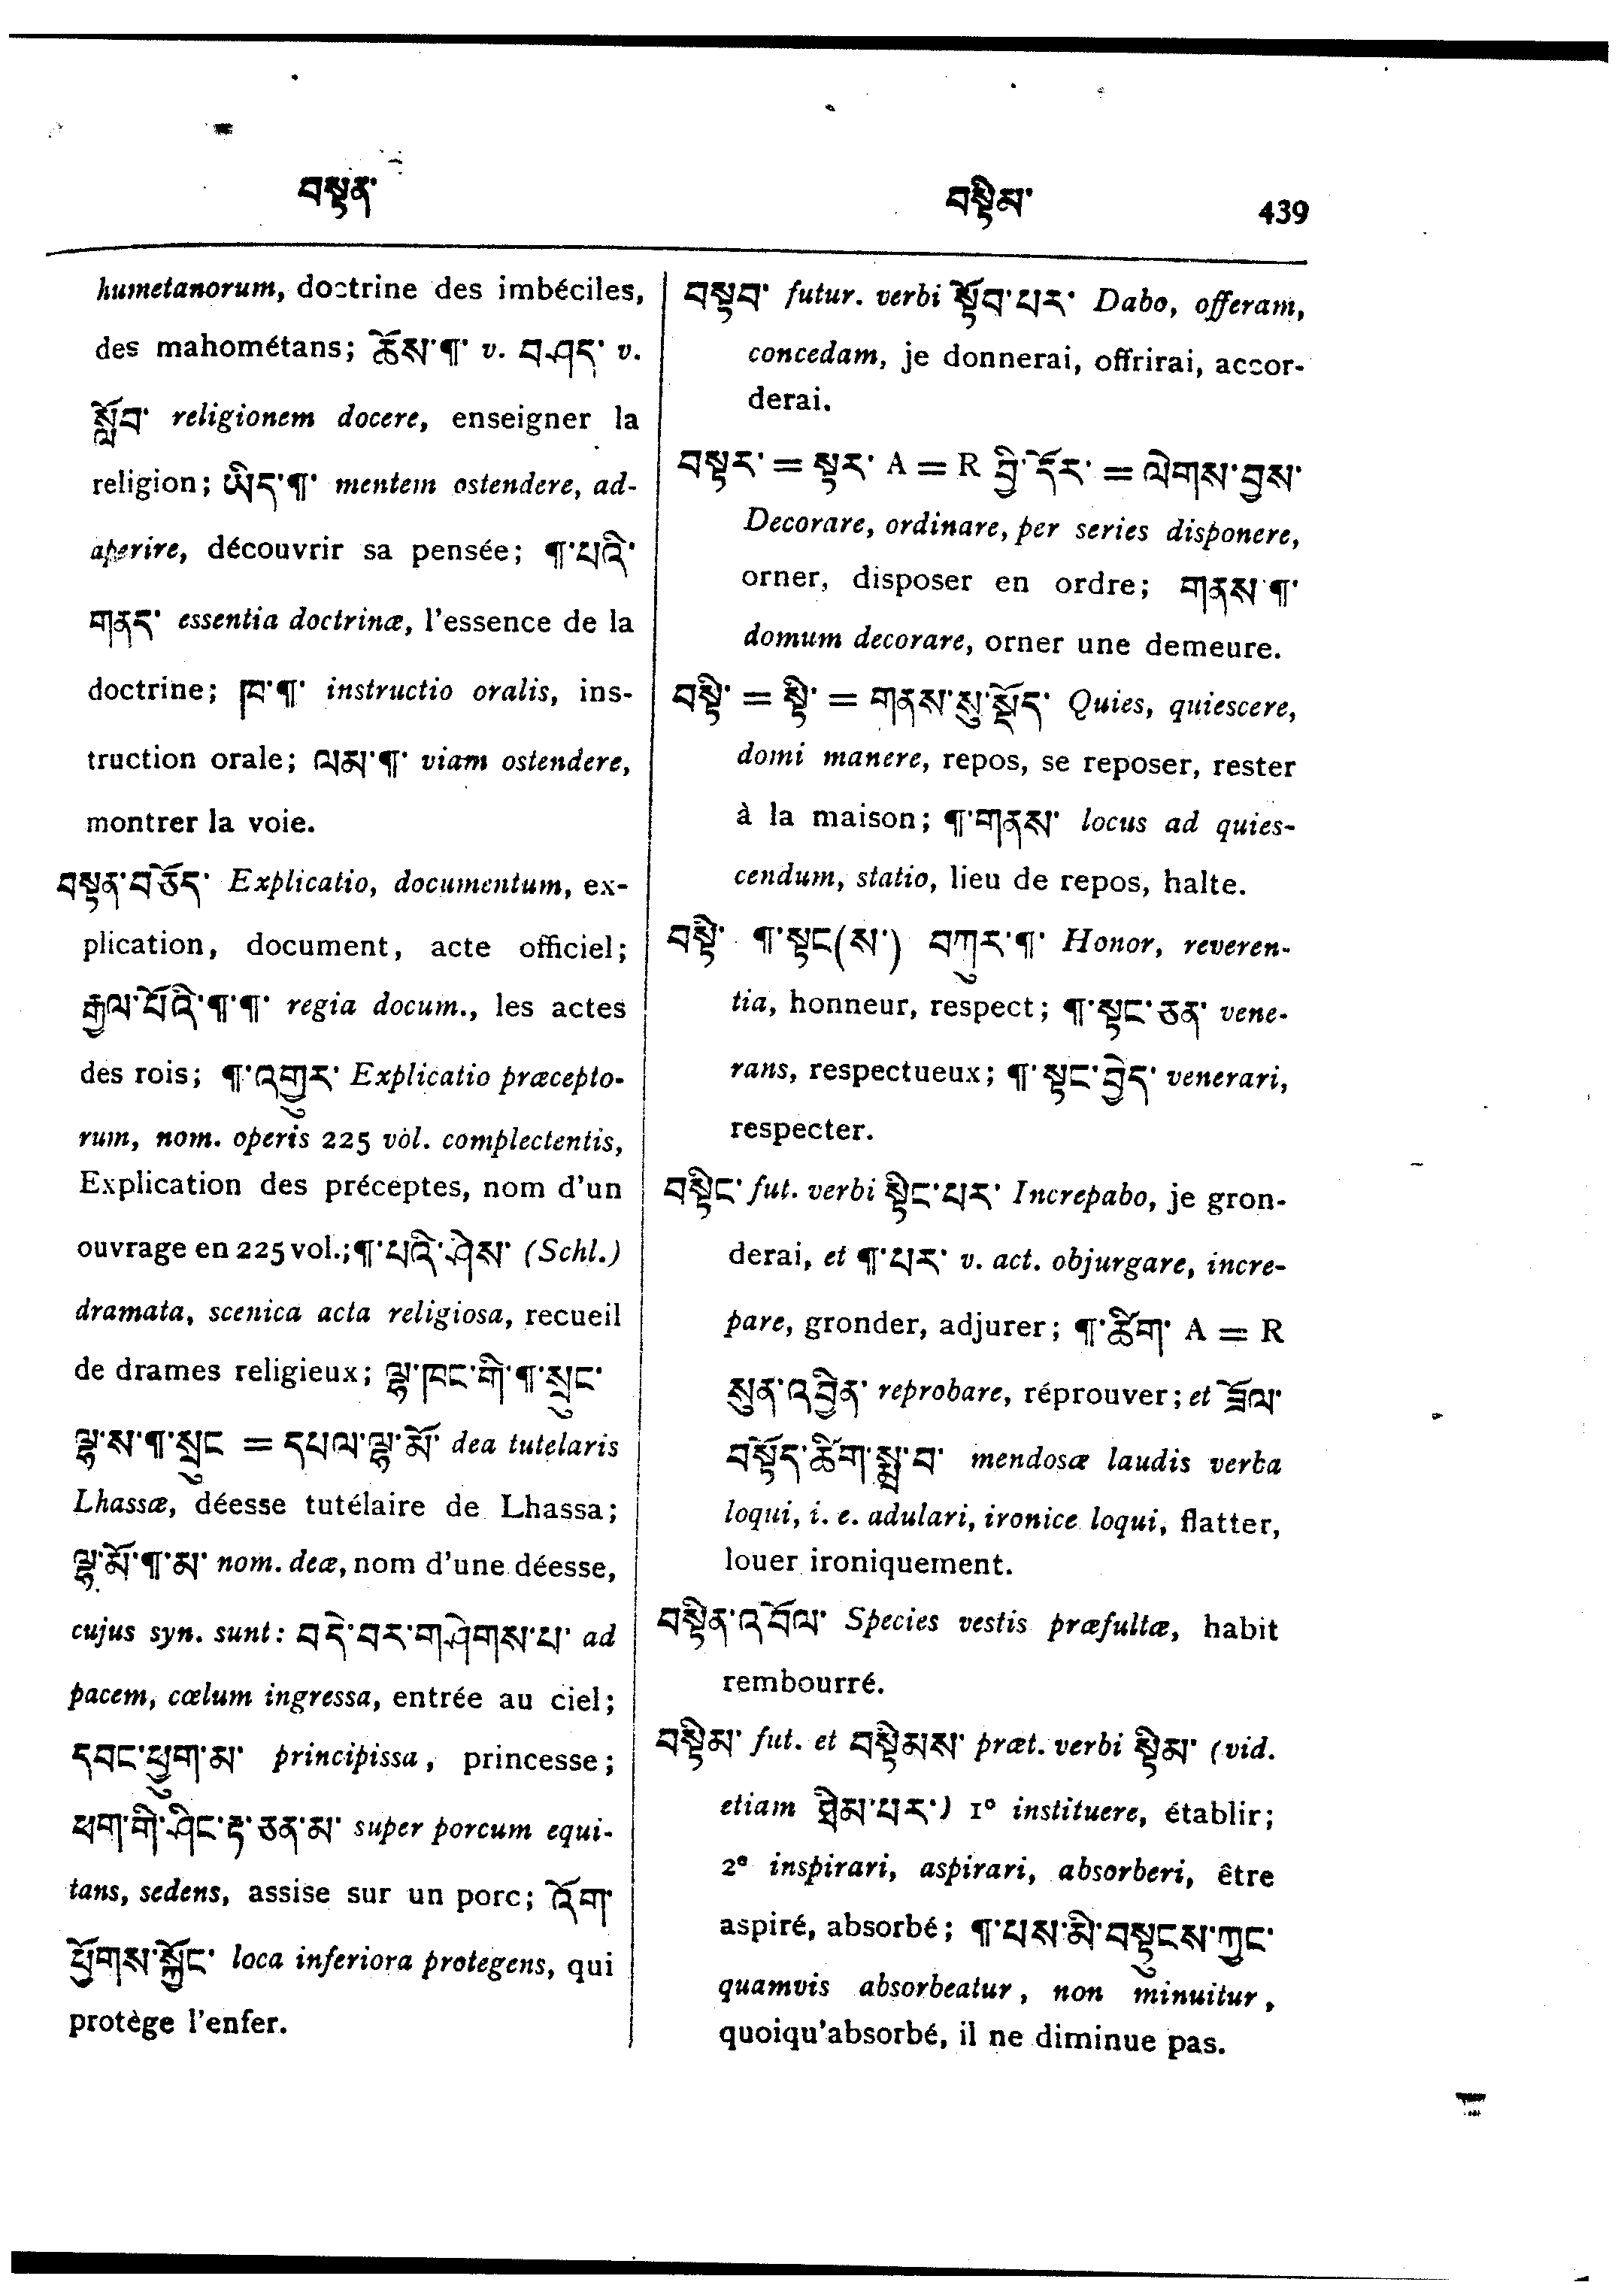 བསྟན་
བསྟིམ་
439
humetanorum, doctrine des imbéciles,
des mahométans; ཆོས་¶་ v. བཤད་ v.
སློབ་ religionem docere, enseigner la
religion; ཡིད་¶་ mentem ostendere, ad-
aperire, découvrir sa pensée; ¶་པའི་
གནད་ essentia doctrinæ, l'essence de la
doctrine; ཁ་¶་ instructio oralis, ins-
truction orale; ལམ་¶་ viam ostendere,
montrer la voie.
བསྟན་བཅོད་ Explicatio, documentum, ex-
plication, document, acte officiel;
རྒྱལ་པོའི་¶་¶་ regia docum., les actes
des rois; ¶་འགྱུར་ Explicatio præcepto-
rum, nom. operis 225 vol. complectentis,
Explication des préceptes, nom d'un
ouvrage en 225 vol.; ¶་པའི་ཤེས་ (Schl.)
dramata, scenica acta religiosa, recueil
de drames religieux; ལྷ་ཁང་གི་¶་སྲུང་
ལྷ་ས་¶་སྲུང = དཔལ་ལྷ་མོ་ dea tutelaris
Lhassæ, déesse tutélaire de Lhassa;
ལྷ་མོ་¶་མ་ nom. deæ, nom d'une déesse,
cujus syn. sunt: བདེ་བར་གཤེགས་པ་ ad
pacem, cœlum ingressa, entrée au ciel;
དབང་ཕྱུག་མ་ principissa, princesse;
ཕག་གི་ཤིང་རྟ་ཅན་མ་ super porcum equi-
tans, sedens, assise sur un porc; འོག་
ཕྱོགས་སྐྱོང་ loca inferiora protegens, qui
protège l'enfer.
བསྟབ་ futur. verbi སྟོབ་པར་ Dabo, offeram,
concedam, je donnerai, offrirai, accor-
derai.
བསྟར་ = སྟར་ A = R བྱི་དོར་ = ལེགས་བྱས་
Decorare, ordinare, per series disponere,
orner, disposer en ordre; གནས་¶་
domum decorare, orner une demeure.
བསྟི་ = སྟི་ = གནས་སུ་སྡོད་ Quies, quiescere,
domi manere, repos, se reposer, rester
à la maison; ¶་གནས་ locus ad quies-
cendum, statio, lieu de repos, halte.
བསྟི་ ¶་སྟང(ས་) བཀུར་¶་ Honor, reveren-
tia, honneur, respect; ¶་སྟང་ཅན་ vene-
rans, respectueux; ¶་སྟང་བྱེད་ venerari,
respecter.
བསྟིང་ fut. verbi སྟིང་པར་ Increpabo, je gron-
derai, et ¶་པར་ v. act. objurgare, incre-
pare, gronder, adjurer; ¶་ཚིག་ A = R
སུན་འབྱིན་ reprobare, réprouver; et ཟོལ་
བསྟོད་ཚིག་སྨྲ་བ་ mendosæ laudis verba
loqui, i. e. adulari, ironice loqui, flatter,
louer ironiquement.
བསྟིན་འབོལ་ Species vestis præfultæ, habit
rembourré.
བསྟིམ་ fut. et བསྟིམས་ præt. verbi སྟིམ་ (vid.
etiam ཐིམ་པར་) 1º instituere, établir;
2º inspirari, aspirari, absorberi, être
aspiré, absorbé; ¶་པས་མི་བསྟུངས་ཀྱང་
quamvis absorbeatur, non minuitur,
quoiqu'absorbé, il ne diminue pas.